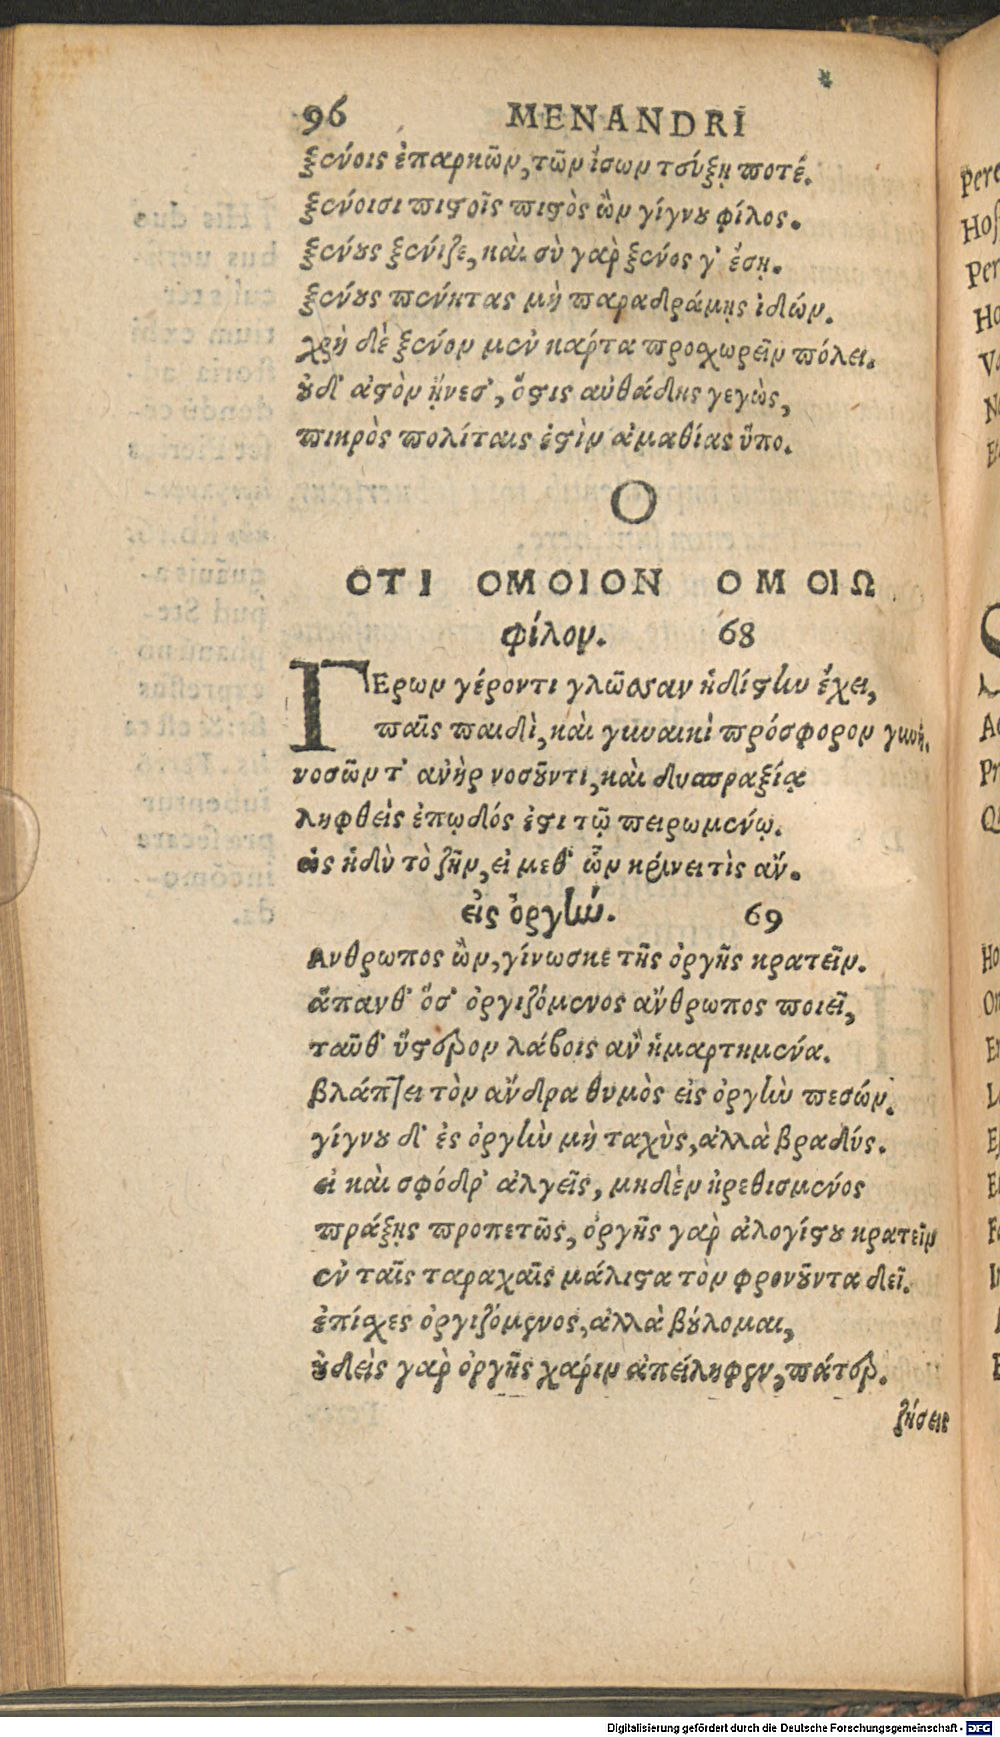 96 MENANDRI
ξένοις ἐπαρκῶν, τῶν ἴσων τεύξῃ ποτέ.
ξένοισι πιστοῖς πιστὸς ὢν γίγνου φίλος.
ξένους ξένιζε, καὶ σὺ γὰρ ξένος γ' ἔσῃ.
ξένους πένητας μὴ παραδράμῃς ἰδών.
χρὴ δὲ ξένον μὲν κάρτα προσχωρεῖν πόλει.
οὐδ' ἀστὸν ᾔνεσ', ὅστις αὐθάδης γεγὼς,
πικρὸς πολίταις ἐστὶν ἀμαθίας ὕπο.
Ο
ΟΤΙ ΟΜΟΙΟΝ ΟΜΟΙΩ
φίλον. 68
ΓΕρων γέροντι γλῶσσαν ἡδίστην ἔχει,
παῖς παιδὶ, καὶ γυναικὶ πρόσφορον γυνὴ.
νοσῶν τ' ἀνὴρ νοσοῦντι, καὶ δυσπραξίᾳ
ληφθεὶς ἐπῳδός ἐστι τῷ πειρωμένῳ.
ὡς ἡδὺ τὸ ζῆν, εἰ μεθ' ὧν κρίνει τὶς ἄν.
εἰς ὀργήν. 69
Ανθρωπος ὢν, γίνωσκε τῆς ὀργῆς κρατεῖν.
ἅπανθ' ὅσ' ὀργιζόμενος ἄνθρωπος ποιεῖ,
ταῦθ' ὕστερον λάβοις ἂν ἡμαρτημένα.
βλάπτει τὸν ἄνδρα θυμὸς εἰς ὀργὴν πεσών.
γίγνου δ' ἐς ὀργὴν μὴ ταχὺς, ἀλλὰ βραδύς.
εἰ καὶ σφόδρ' ἀλγεῖς, μηδὲν ἠρεθισμένος
πράξῃς προπετῶς, ὀργῆς γὰρ ἀλογίστου κρατεῖν
ἐν ταῖς ταραχαῖς μάλιστα τὸν φρονοῦντα δεῖ.
ἐπίσχες ὀργιζόμενος, ἀλλὰ βούλομαι,
οὐδεὶς γὰρ ὀργῆς χάριν ἀπείληφεν, πάτερ.
ζήσεις
Digitalisierung gefördert durch die Deutsche Forschungsgemeinschaft - DFG